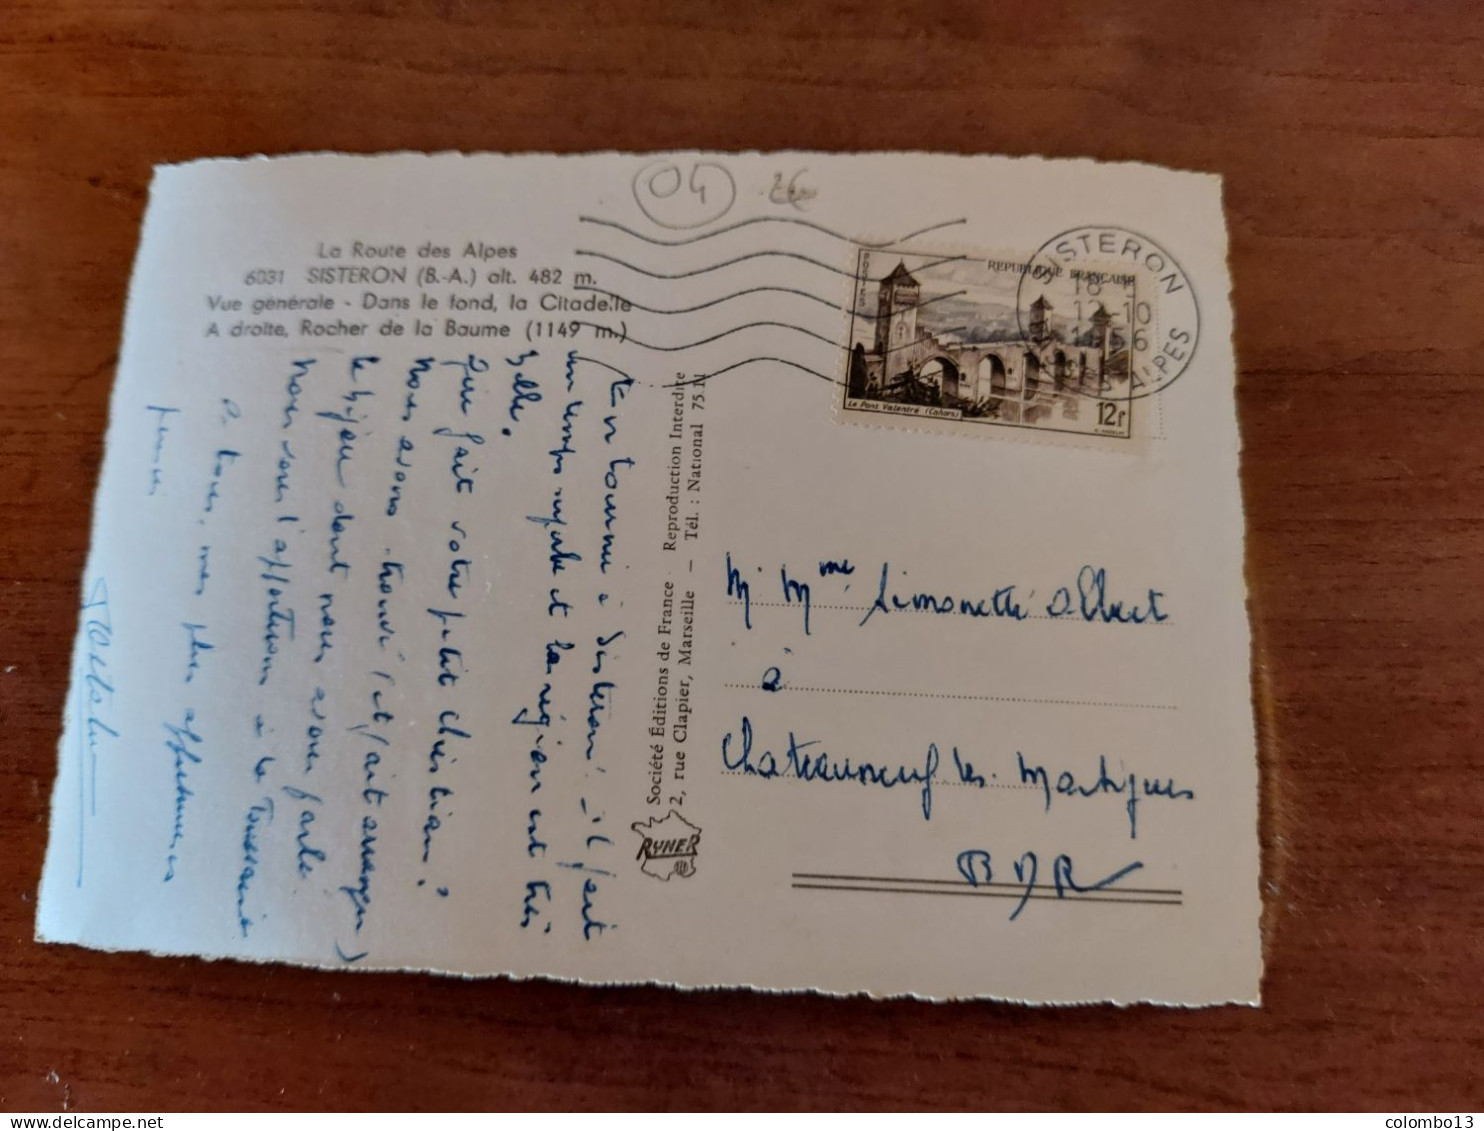 04
2€
La Route des Alpes
6031 SISTERON (B.-A.) alt. 482 m.
Vue générale - Dans le fond, la Citadelle
A droite, Rocher de la Baume (1149 m.)
En tournée à Sisteron. il fait
un temps splendide et la région est très
belle.
Que fait votre petit Christian?
Nous avons trouvé (et fait arranger)
le bijou dont nous avons parlé.
Nous vous l'apporterons à la Toussaint
à tous, mes plus affectueuses
pensées
Société Éditions de France - Reproduction Interdite
2, rue Clapier, Marseille - Tél. : National 75.11
RYNER
POSTES
REPUBLIQUE FRANÇAISE
Le Pont Valentré (Cahors)
12f
SISTERON
18 H
12-10
1956
BASSES ALPES
M Mme Simonetti Albert
à
Chateauneuf les Martigues
BDR
colombo13